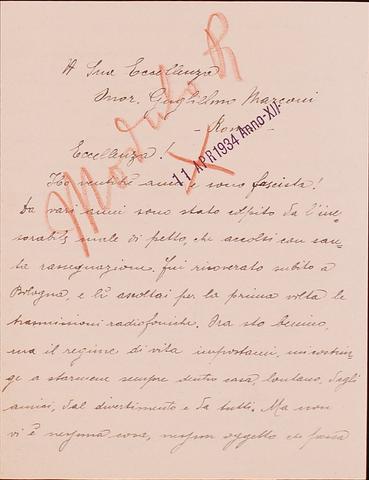 A Sua Eccellenza
Mar. Guglielmo Marconi
- Roma -
11 APR 1934 Anno XII
Eccellenza!
Ho ventitré anni e sono fascista!
Da vari anni sono stato colpito da l'ine-
sorabile male di petto, che accolsi con san-
ta rassegnazione. Fui ricoverato subito a
Bologna, e lì ascoltai per la prima volta le
trasmissioni radiofoniche. Ora sto benino,
ma il regime di vita impostami, mi costrin-
ge a starmene sempre dentro casa, lontano, dagli
amici, dal divertimento e da tutti. Ma non
vi è nessuna cosa, nessun oggetto che possa
Modulo R